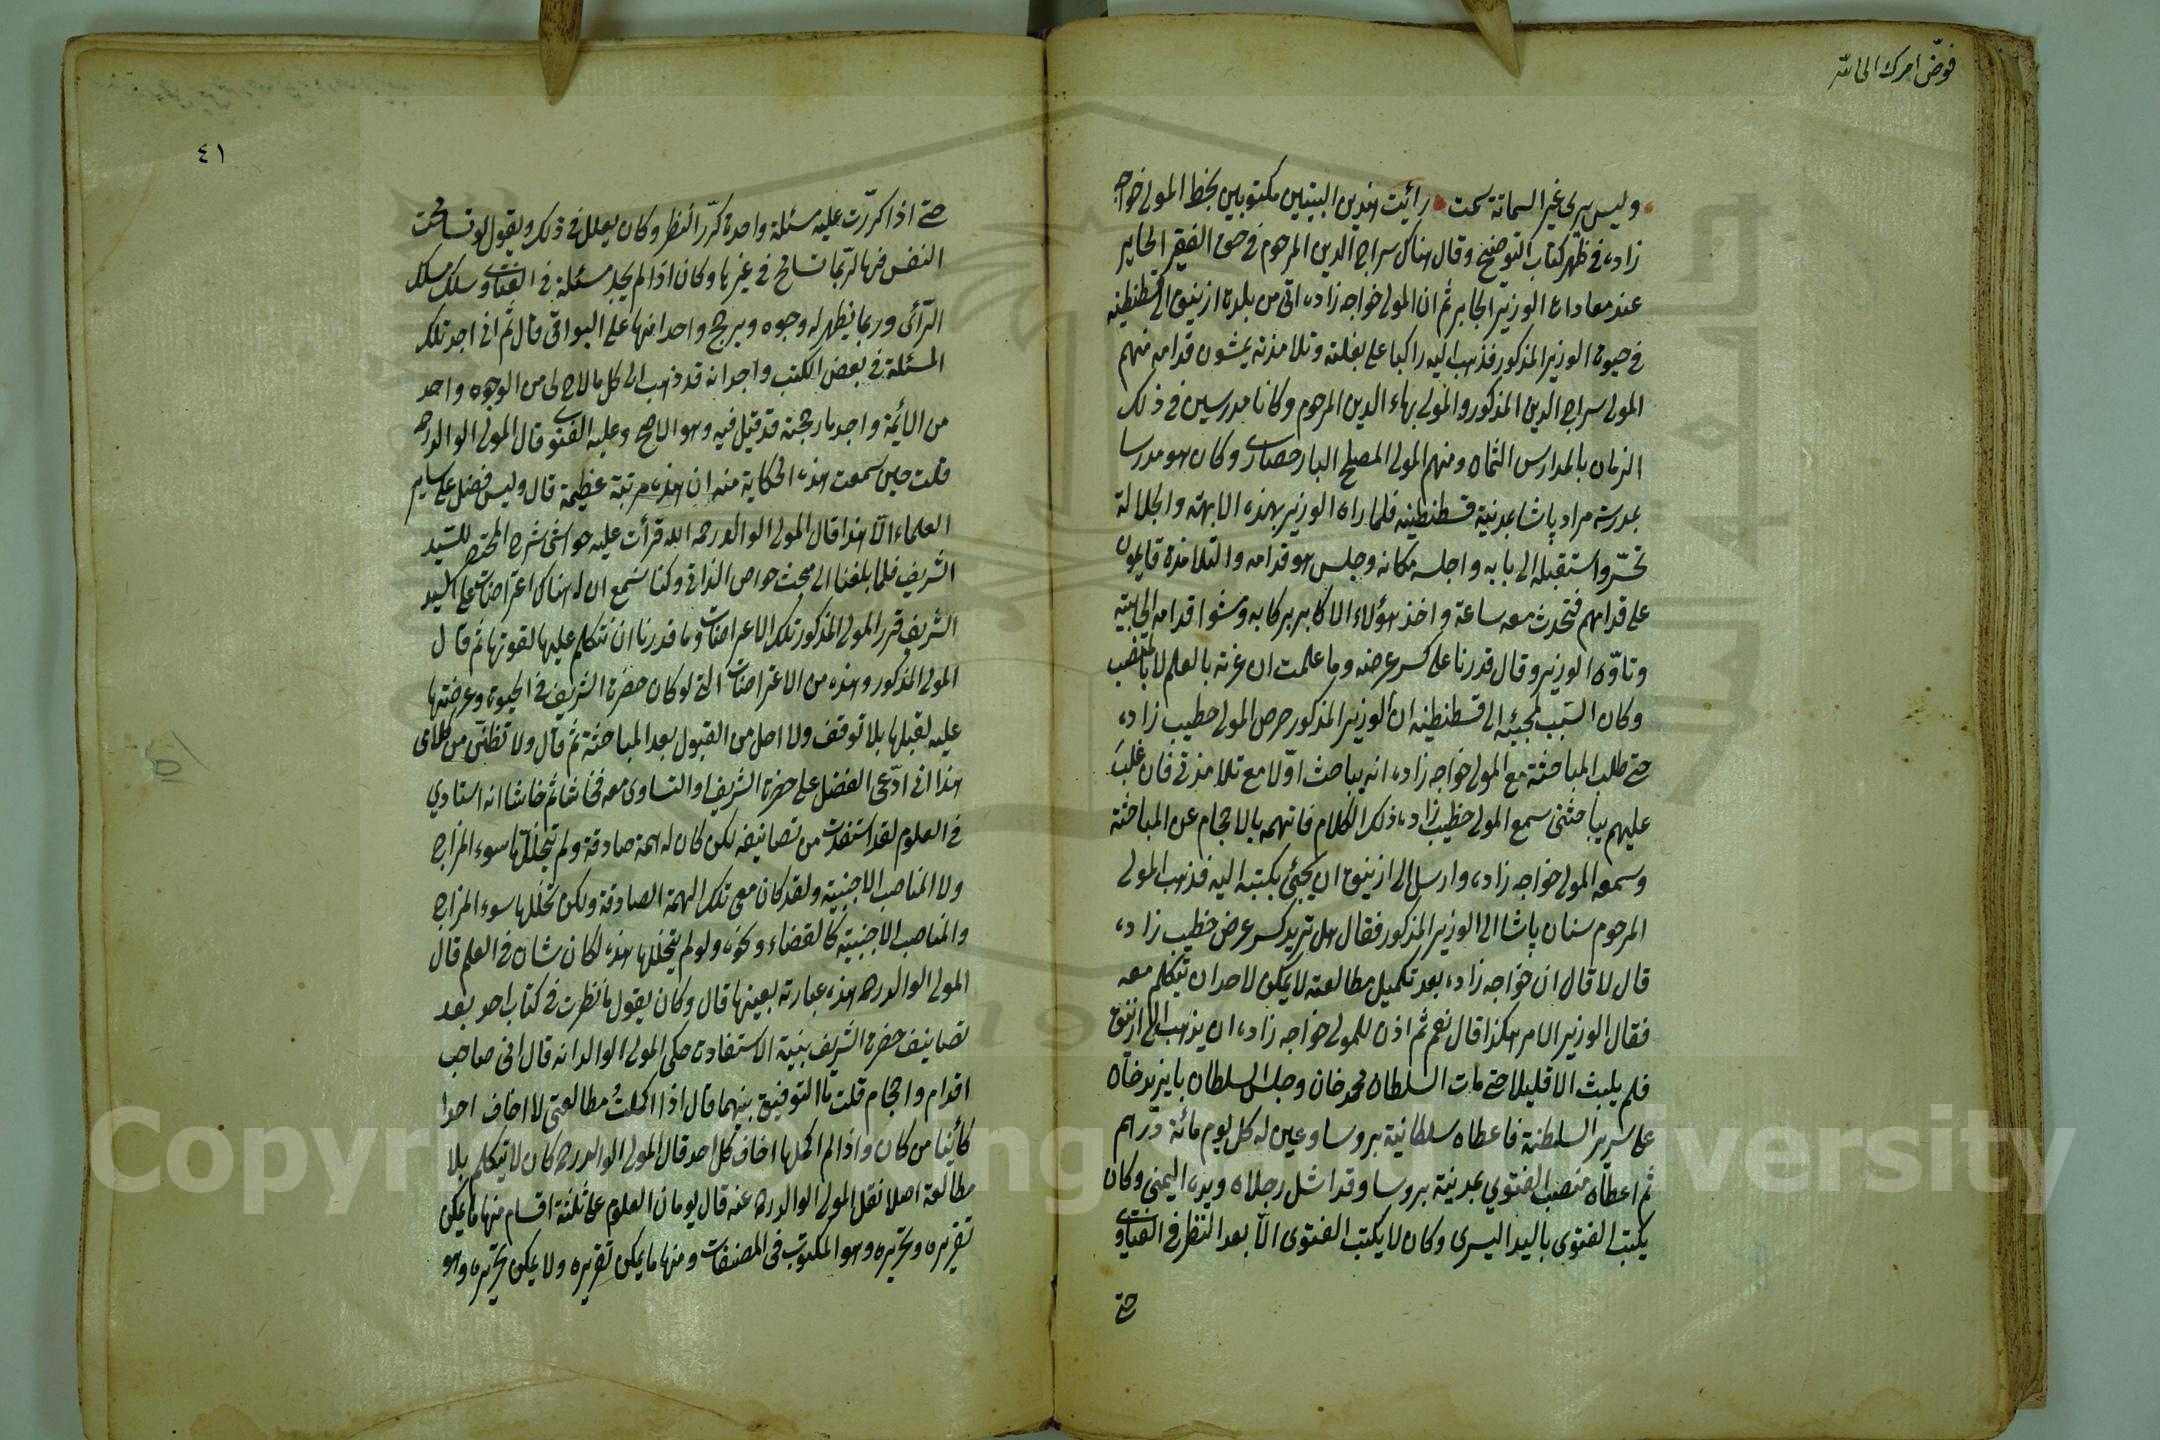 فوّض امرك الى الله
وليس يرى غير السماتة يحت رايت هذين البيتين مكتوبين بخط المولى خواجه
زاده في ظهر كتاب التوضيح وقال هناك سراج الدين المرحوم في حق الفقير الحاير
عند معاداة الوزير الجابر ثم ان المولى خواجه زاده اتى من بلدة ازنيق الى قسطنطنيه
في حيوة الوزير المذكور فذهب اليه راكبا على بغلته وتلامذته يمشون قدامه منهم
المولى سراج الدين المذكور والمولى بهاء الدين المرحوم وكانا مدرسين في ذلك
الزمان بالمدارس الثمان ومنهم المولى المصلح اليارحصارى وكان هو مدرسا
بمدرسة مراد پاشا بمدنية قسطنطنيه فلما راه الوزير بهذه الابهة والجلالة
تحسّر واستقبله الى بابه واجلسه مكانه وجلس هو قدامه والتلامذة قايمون
على قدامهم فتحدث معه ساعة واخذ هؤلاء الاكابر بركابه ومشوا قدامه الى بيته
وتاوّه الوزير وقال قدرنا على كسر عرضه وما علمت ان عزته بالعلم لا بالمنصب
وكان السّبب لمجيئه الى قسطنطنيه ان الوزير المذكور حرص المولى خطيب زاده
حتى طلب المباحثة مع المولى خواجه زاده انه يباحث اوّلا مع تلامذتى فان غلب
عليهم يباحثنى سمع المولى خطيب زاده ذلك الكلام فاتهمه بالاحجام عن المباحثة
وسمعه المولى خواجه زاده وارسل الى ازنيق ان يجئ بكتبه اليه فذهب المولى
المرحوم سنان پاشا الى الوزير المذكور فقال هل تريد كسر عرض خطيب زاده
قال لا قال ان خواجه زاده بعد تكميل مطالعته لا يمكن لاحد ان يتكلم معه
فقال الوزير الامر هكذا قال نعم ثم اذن للمولى خواجه زاده ان يذهب الى ازنيق
فلم يلبث الا قليلا حتى مات السلطان محمد خان وجلس السلطان بايزيد خان
على سرير السلطنة فاعطاه سلطانية بروسا وعين له كل يوم مائة درّاهم
ثم اعطاه منصب الفتوي بمدينة بروسا وقد اشل رجلاه ويده اليمنى وكان
يكتب الفتوى باليد اليسرى وكان لا يكتب الفتوى الا بعد النظر في الفتاوى
حتى
٤١
حتى اذا كررّت عليه مسئلة واحدة كرّر النظر وكان يعلل في ذلك ويقول لو تسامحت
النفس فيها لربّما تسامح في غيرها وكان اذا لم يجد مسئلة في الفتاوى سلك مسلك
الرّأى وربما يظهر له وجوه ويرجح واحدا منها على البواقي قال ثم انى اجد تلك
المسئلة في بعض الكتب واجد انه قد ذهب الى كل ما لاح لى من الوجوه واحد
من الائمة واجد ما رجحته قد قيل فيه وهو الاصح وعليه الفتوى قال المولى الوالد رحمه
قلت حين سمعت هذه الحكاية منه ان هذه مرتبة عظيمة قال وليس فضل على ساير
العلماء الّا هذا قال المولى الوالد رحمه الله قرأت عليه حواشى شرح المختصر للسّيد
الشريف فلما بلغنا الى مبحث خواص الذاتى وكنا نسمع ان له هناك اعتراضات على السيد
الشريف قرر المولى المذكور تلك الاعتراضات وما قدرنا ان نتكلم عليها لقوتها ثم قال
المولى المذكور وهذه من الاعتراضات التى لو كان حضرة الشريف في الحيوة وعرضتها
عليه لقبلها بلا توقف ولا اصل من القبول بعد المباحثة ثم قال ولا تظنّن من كلامى
هذا انى ادّعى الفضل على حضرة الشريف او التساوى معه فحاشا ثم حاشا انه استاذي
في العلوم لقد استفدت من تصانيفه لكن كان له همة صادقة ولم يتخلّلها سوء المزاج
ولا المناصب الاجنبية ولقد كان معى تلك الهمة الصادقة ولكن تخللها سوء المزاج
والمناصب الاجنبية كالقضاء ونحوه ولو لم يتخللها هذه لكان شان في العلم قال
المولى الوالد رحمه هذه عبارته بعينها قال وكان يقول ما نظرت في كتاب احد بعد
تصانيف حضرة الشريف بنية الاستفادة حكى المولى الوالد انه قال انى صاحب
اقدام واحجام قلت ما التوفيق بينهما قال اذا اكملت مطالعتى لا اخاف احدا
كائنا من كان واذا لم اكملها اخاف كل احد قال المولى الوالد رحمه كان لا يتكلم بلا
مطالعة اصلا نقل المولى الوالد رحمه عنه قال يوما ان العلوم على ثلثة اقسام منها ما يمكن
تقريره وتحريره وهو المكتوب في المصنفات ومنها ما يمكن تقريره ولا يمكن تحريره وهو
Copyright © King Saud University